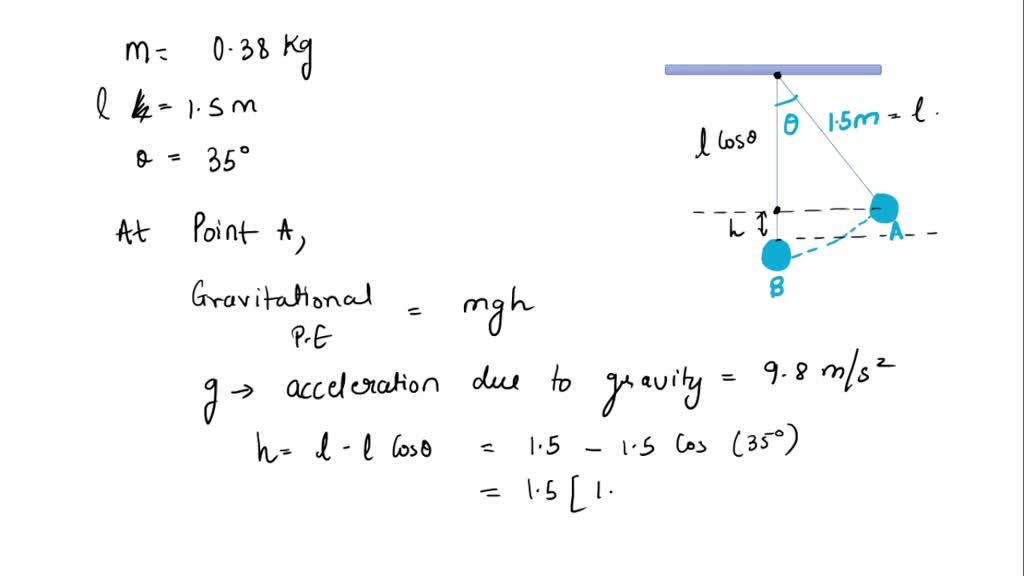 m = 0.38 Kg
l = 1.5 m
θ = 35°
At Point A,
Gravitational P.E = mgh
g → acceleration due to gravity = 9.8 m/s²
h = l - l Cosθ = 1.5 - 1.5 Cos (35°)
= 1.5 [ 1.
θ
1.5m = l.
l Cosθ
h
A
B